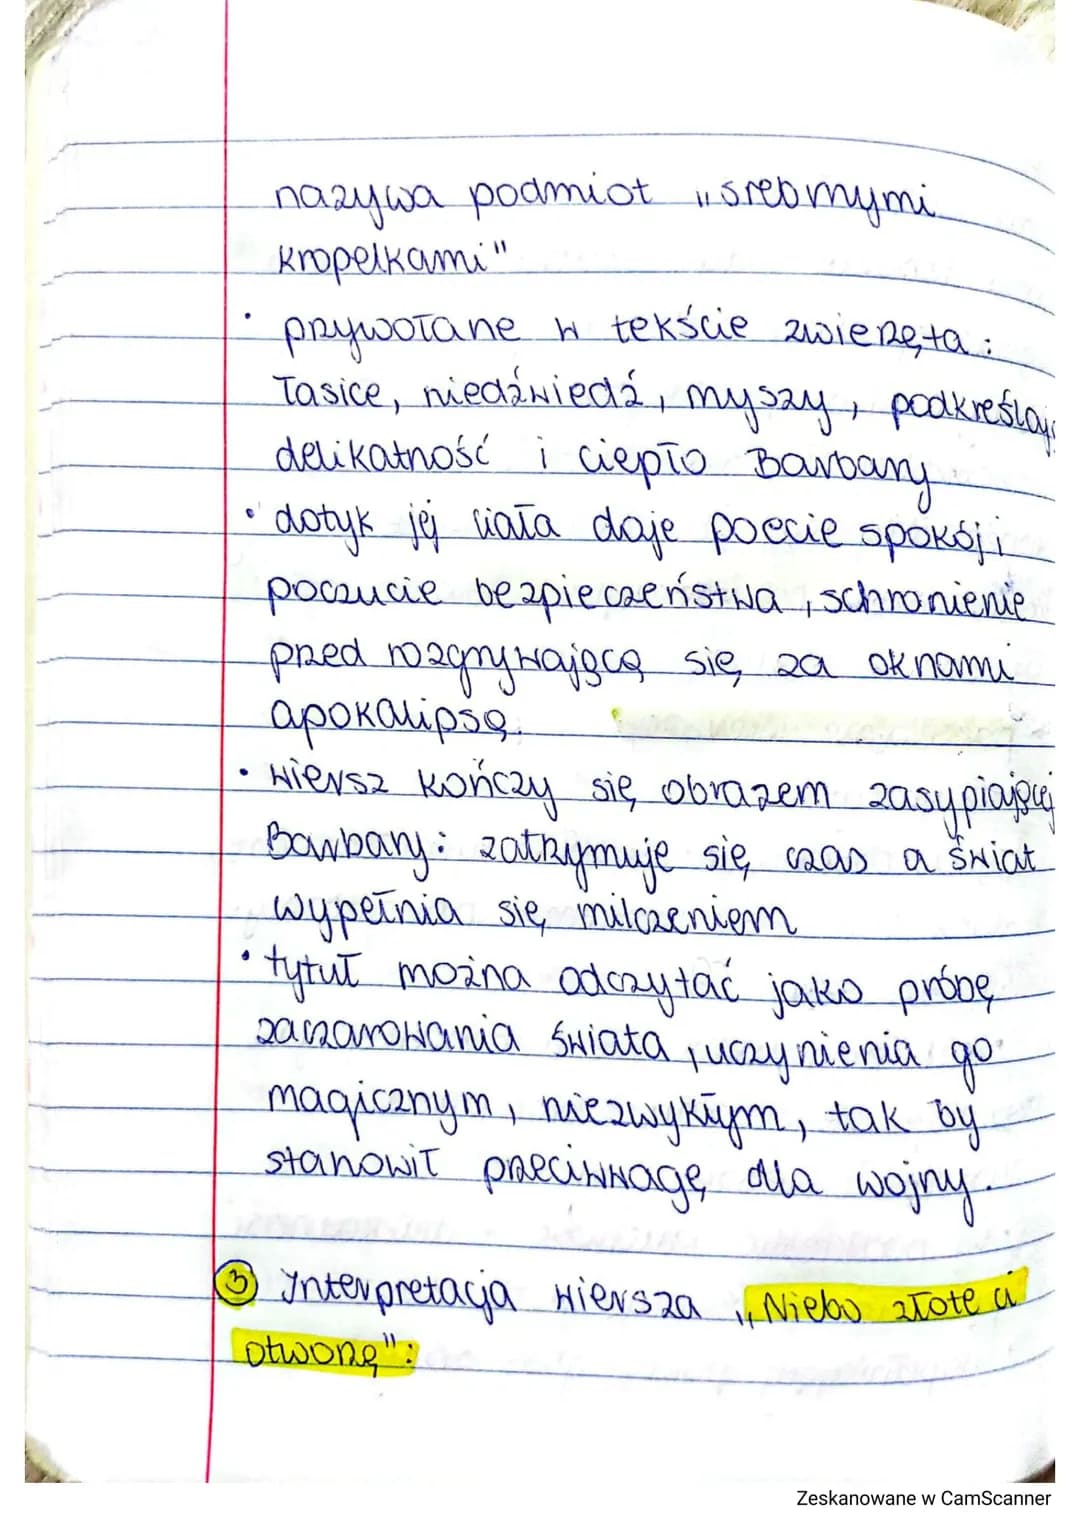 nazywa podmiot „srebrnymi
kropelkami"
• przywołane w tekście zwierzęta:
łasice, niedźwiedź, myszy, podkreślają
delikatność i ciepło Barbary
• dotyk jej ciała daje poecie spokój i
poczucie bezpieczeństwa, schronienie
przed rozgrywającą się za oknami
apokalipsą.
• wiersz kończy się obrazem zasypiającej
Barbary: zatrzymuje się czas a świat
wypełnia się milczeniem
• tytuł można odczytać jako próbę
zaczarowania świata, uczynienia go
magicznym, niezwykłym, tak by
stanowił przeciwwagę dla wojny.
③ Interpretacja wiersza „Niebo złote ci
otworzę":
Zeskanowane w CamScanner